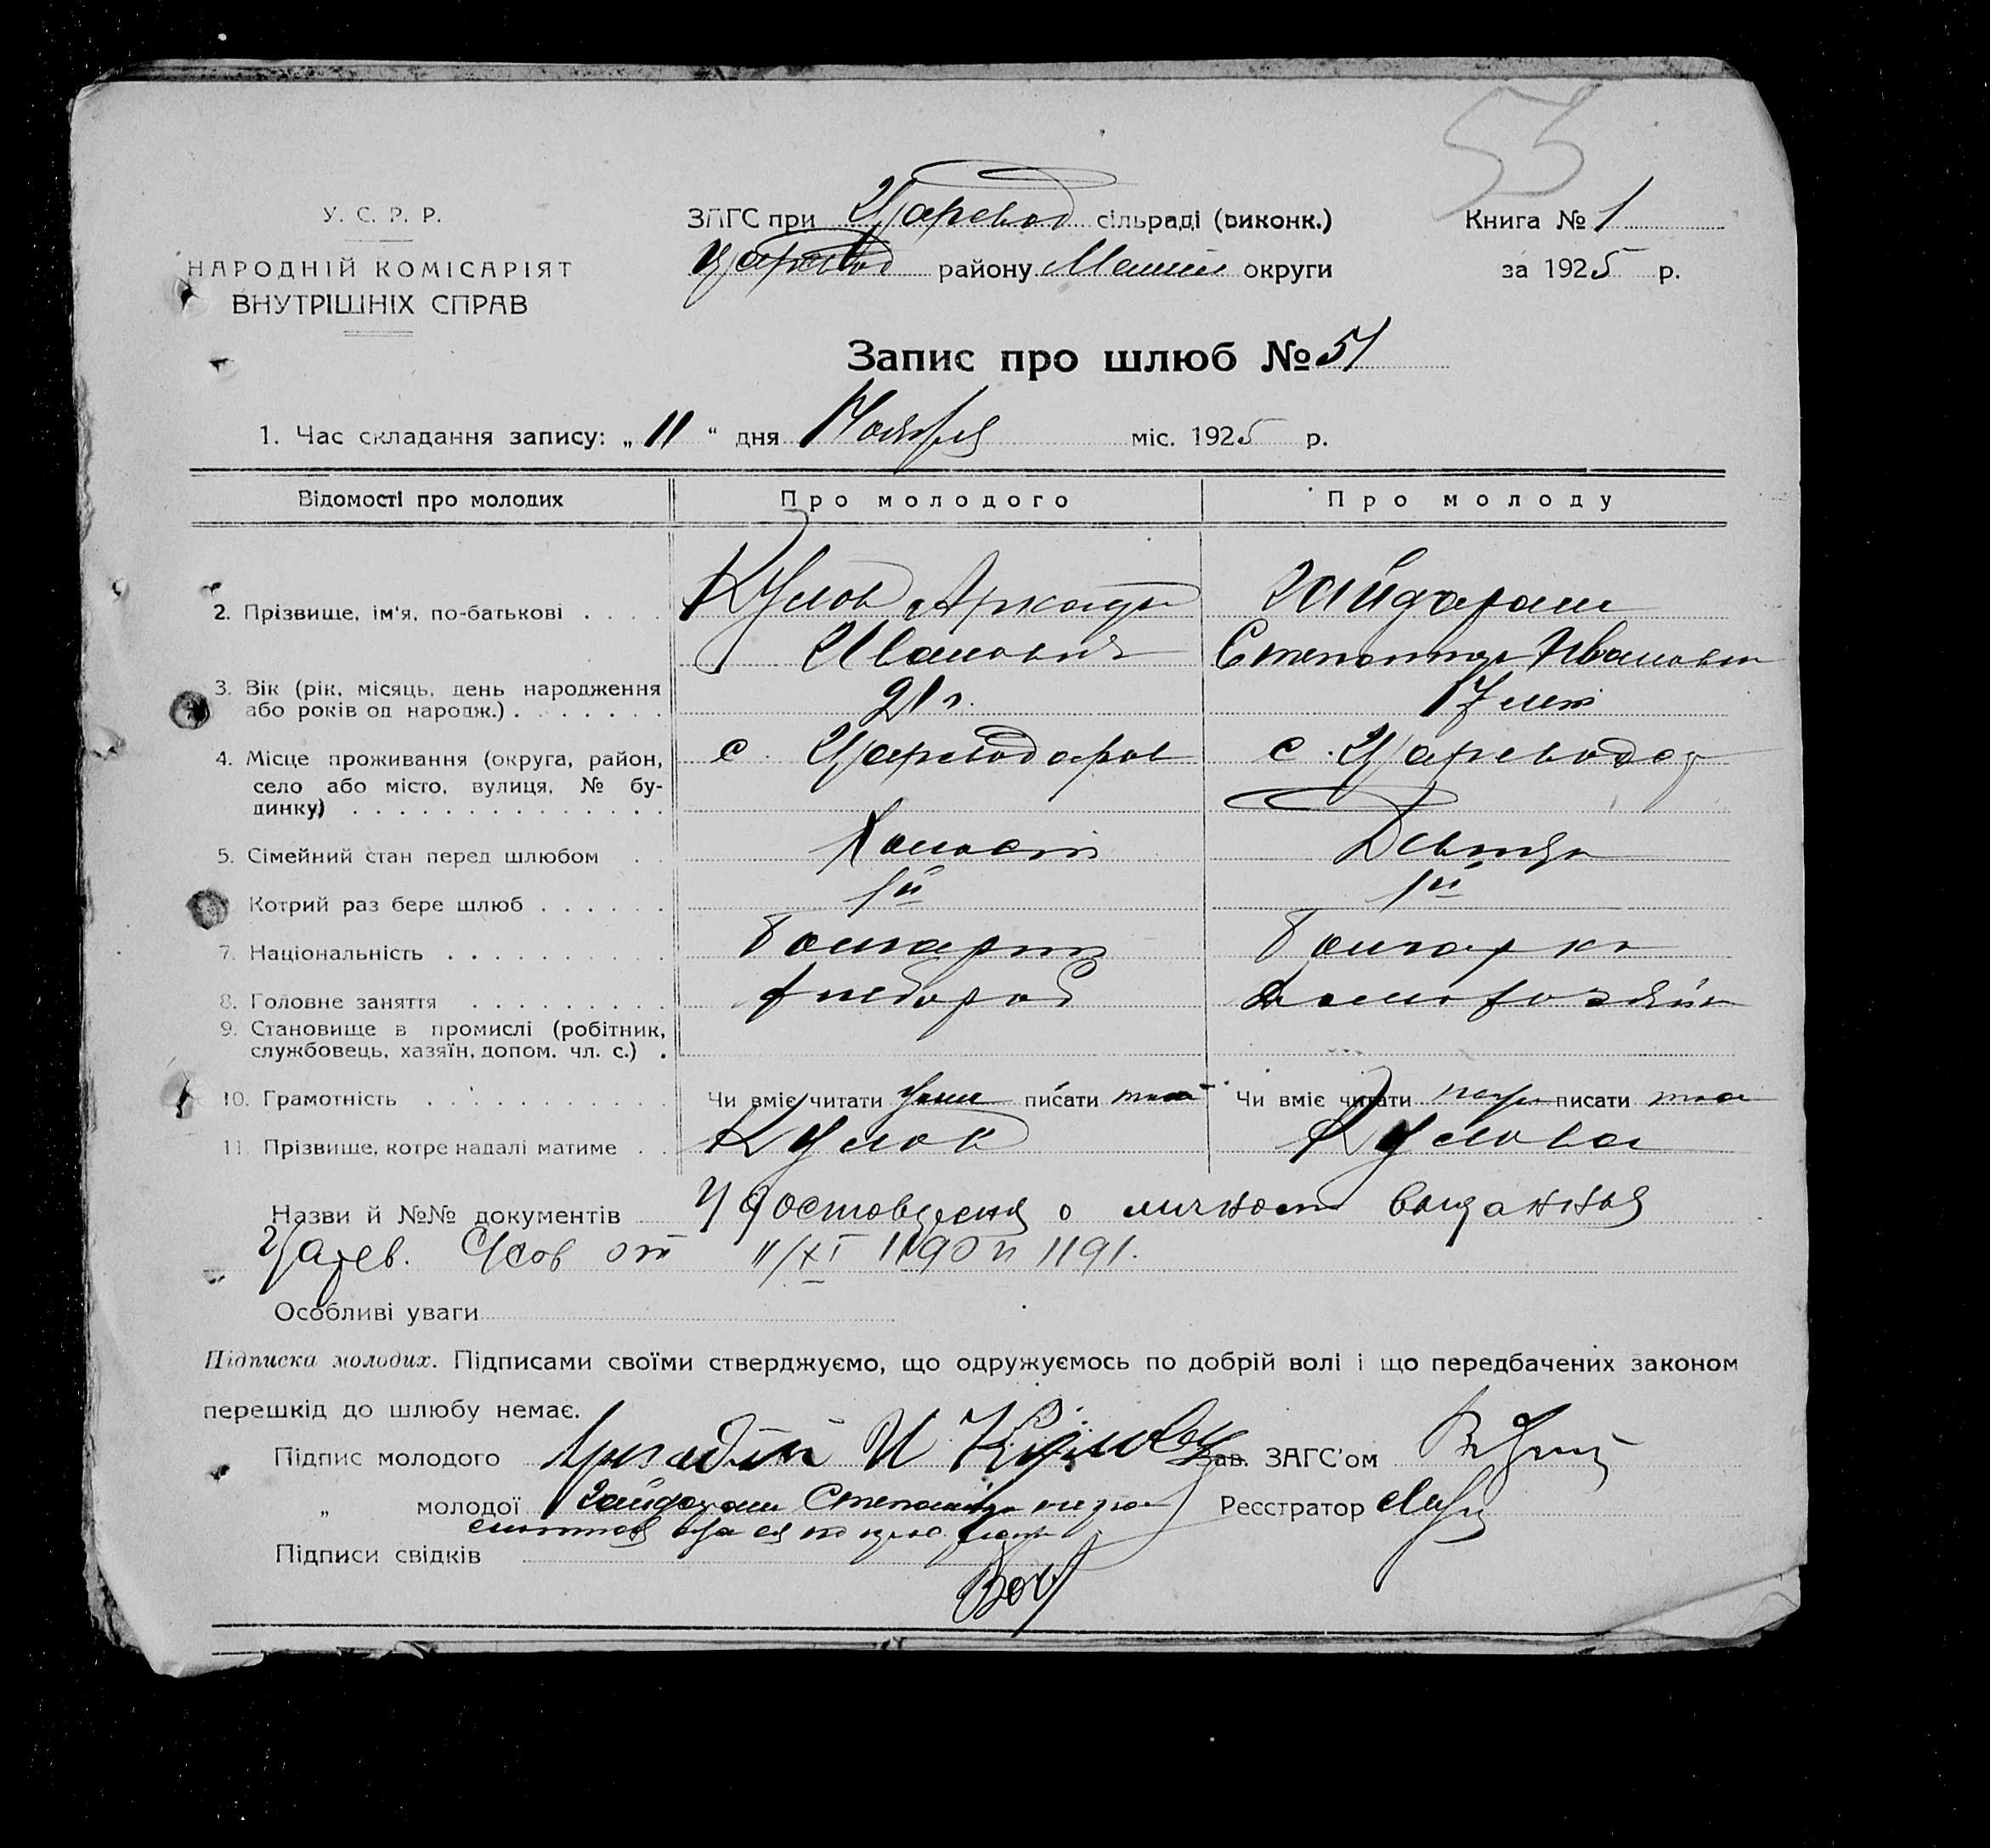 55
У. С. Р. Р.
НАРОДНІЙ КОМІСАРІЯТ
ВНУТРІШНІХ СПРАВ
ЗАГС при Царевод сільраді (виконк.)
Царевод району округи
Книга № 1
за 1925 р.
Запис про шлюб № 51
1. Час складання запису: „ 11 “ дня Ноября міс. 1925 р.
Відомості про молодих
Про молодого
Про молоду
2. Прізвище, ім'я, по-батькові
Аркадий
Иванович
Гайдаржи
Степанида Ивановна
3. Вік (рік, місяць, день народження
або років од народж.)
21 г.
17 лет
4. Місце проживання (округа, район,
село або місто, вулиця, № бу-
динку)
с. Цареводаров
с. Цареводар
5. Сімейний стан перед шлюбом
Холост
Девица
Котрий раз бере шлюб
1й
1й
7. Національність
Болгарин
Болгарка
8. Головне заняття
Хлебороб
Домохозяйка
9. Становище в промислі (робітник,
службовець, хазяїн, допом. чл. с.)
10. Грамотність
Чи вміє читати писати
Чи вміє читати писати
11. Прізвище, котре надалі матиме
Назви й №№ документів Удостоверения о личности выданныя
Царев. от 11/XI 1190 и 1191.
Особливі уваги
Підписка молодих. Підписами своїми стверджуємо, що одружуємось по добрій волі і що передбачених законом
перешкід до шлюбу немає.
Підпис молодого Аркадий И
Зав. ЗАГС'ом
„ молодої Гайдаржи Степанида
Реєстратор
Підписи свідків